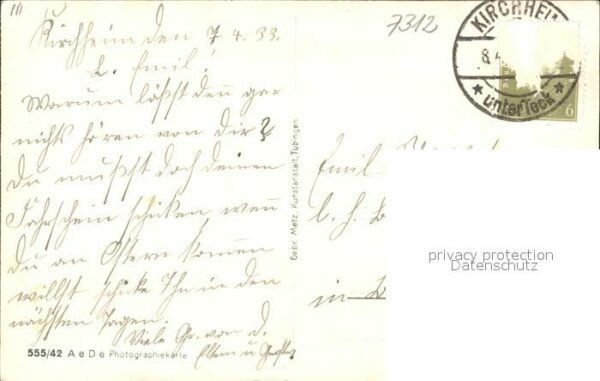 7312
Kirchheim den 7.4.33.
L. Emil!
Warum läßt denn gar
nichts hören von Dir?
Du mußt doch deinen
Fahrschein schicken, wenn
Du an Ostern kommen
willst schicke Ihn in den
nächsten Tagen.
Viele Gr. von d.
Eltern u Geschw
555/42 AeDe Photographiekarte
Gebr. Metz, Kunstanstalt, Tübingen
KIRCHHEIM
unter Teck
6
Emil
b. H.
in
privacy protection
Datenschutz